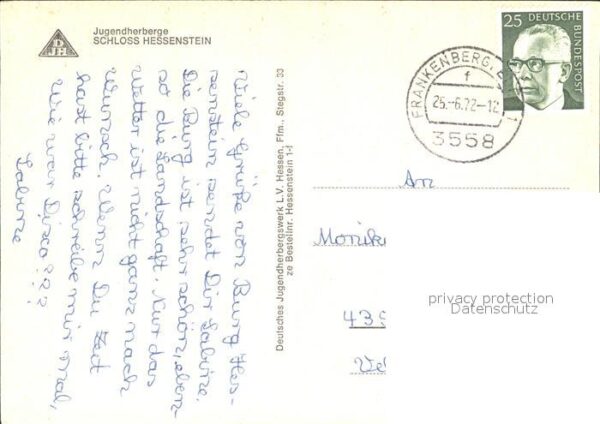 DJH
Jugendherberge
SCHLOSS HESSENSTEIN
Viele Grüße von Burg Hes-
senstein sendet Dir Sabine.
Die Burg ist sehr schön, eben-
so die Landschaft. Nur das
Wetter ist nicht ganz nach
Wunsch. Wenn Du Zeit
hast bitte schreibe mir mal,
Wie war Disco???
Sabine
Deutsches Jugendherbergswerk L.V. Hessen, Ffm., Stegstr. 33
ze Bestellnr. Hessenstein 1-f
FRANKENBERG, E
f
26.-6.72-12
3558
25 DEUTSCHE
BUNDESPOST
An
Monika
439
privacy protection
Datenschutz